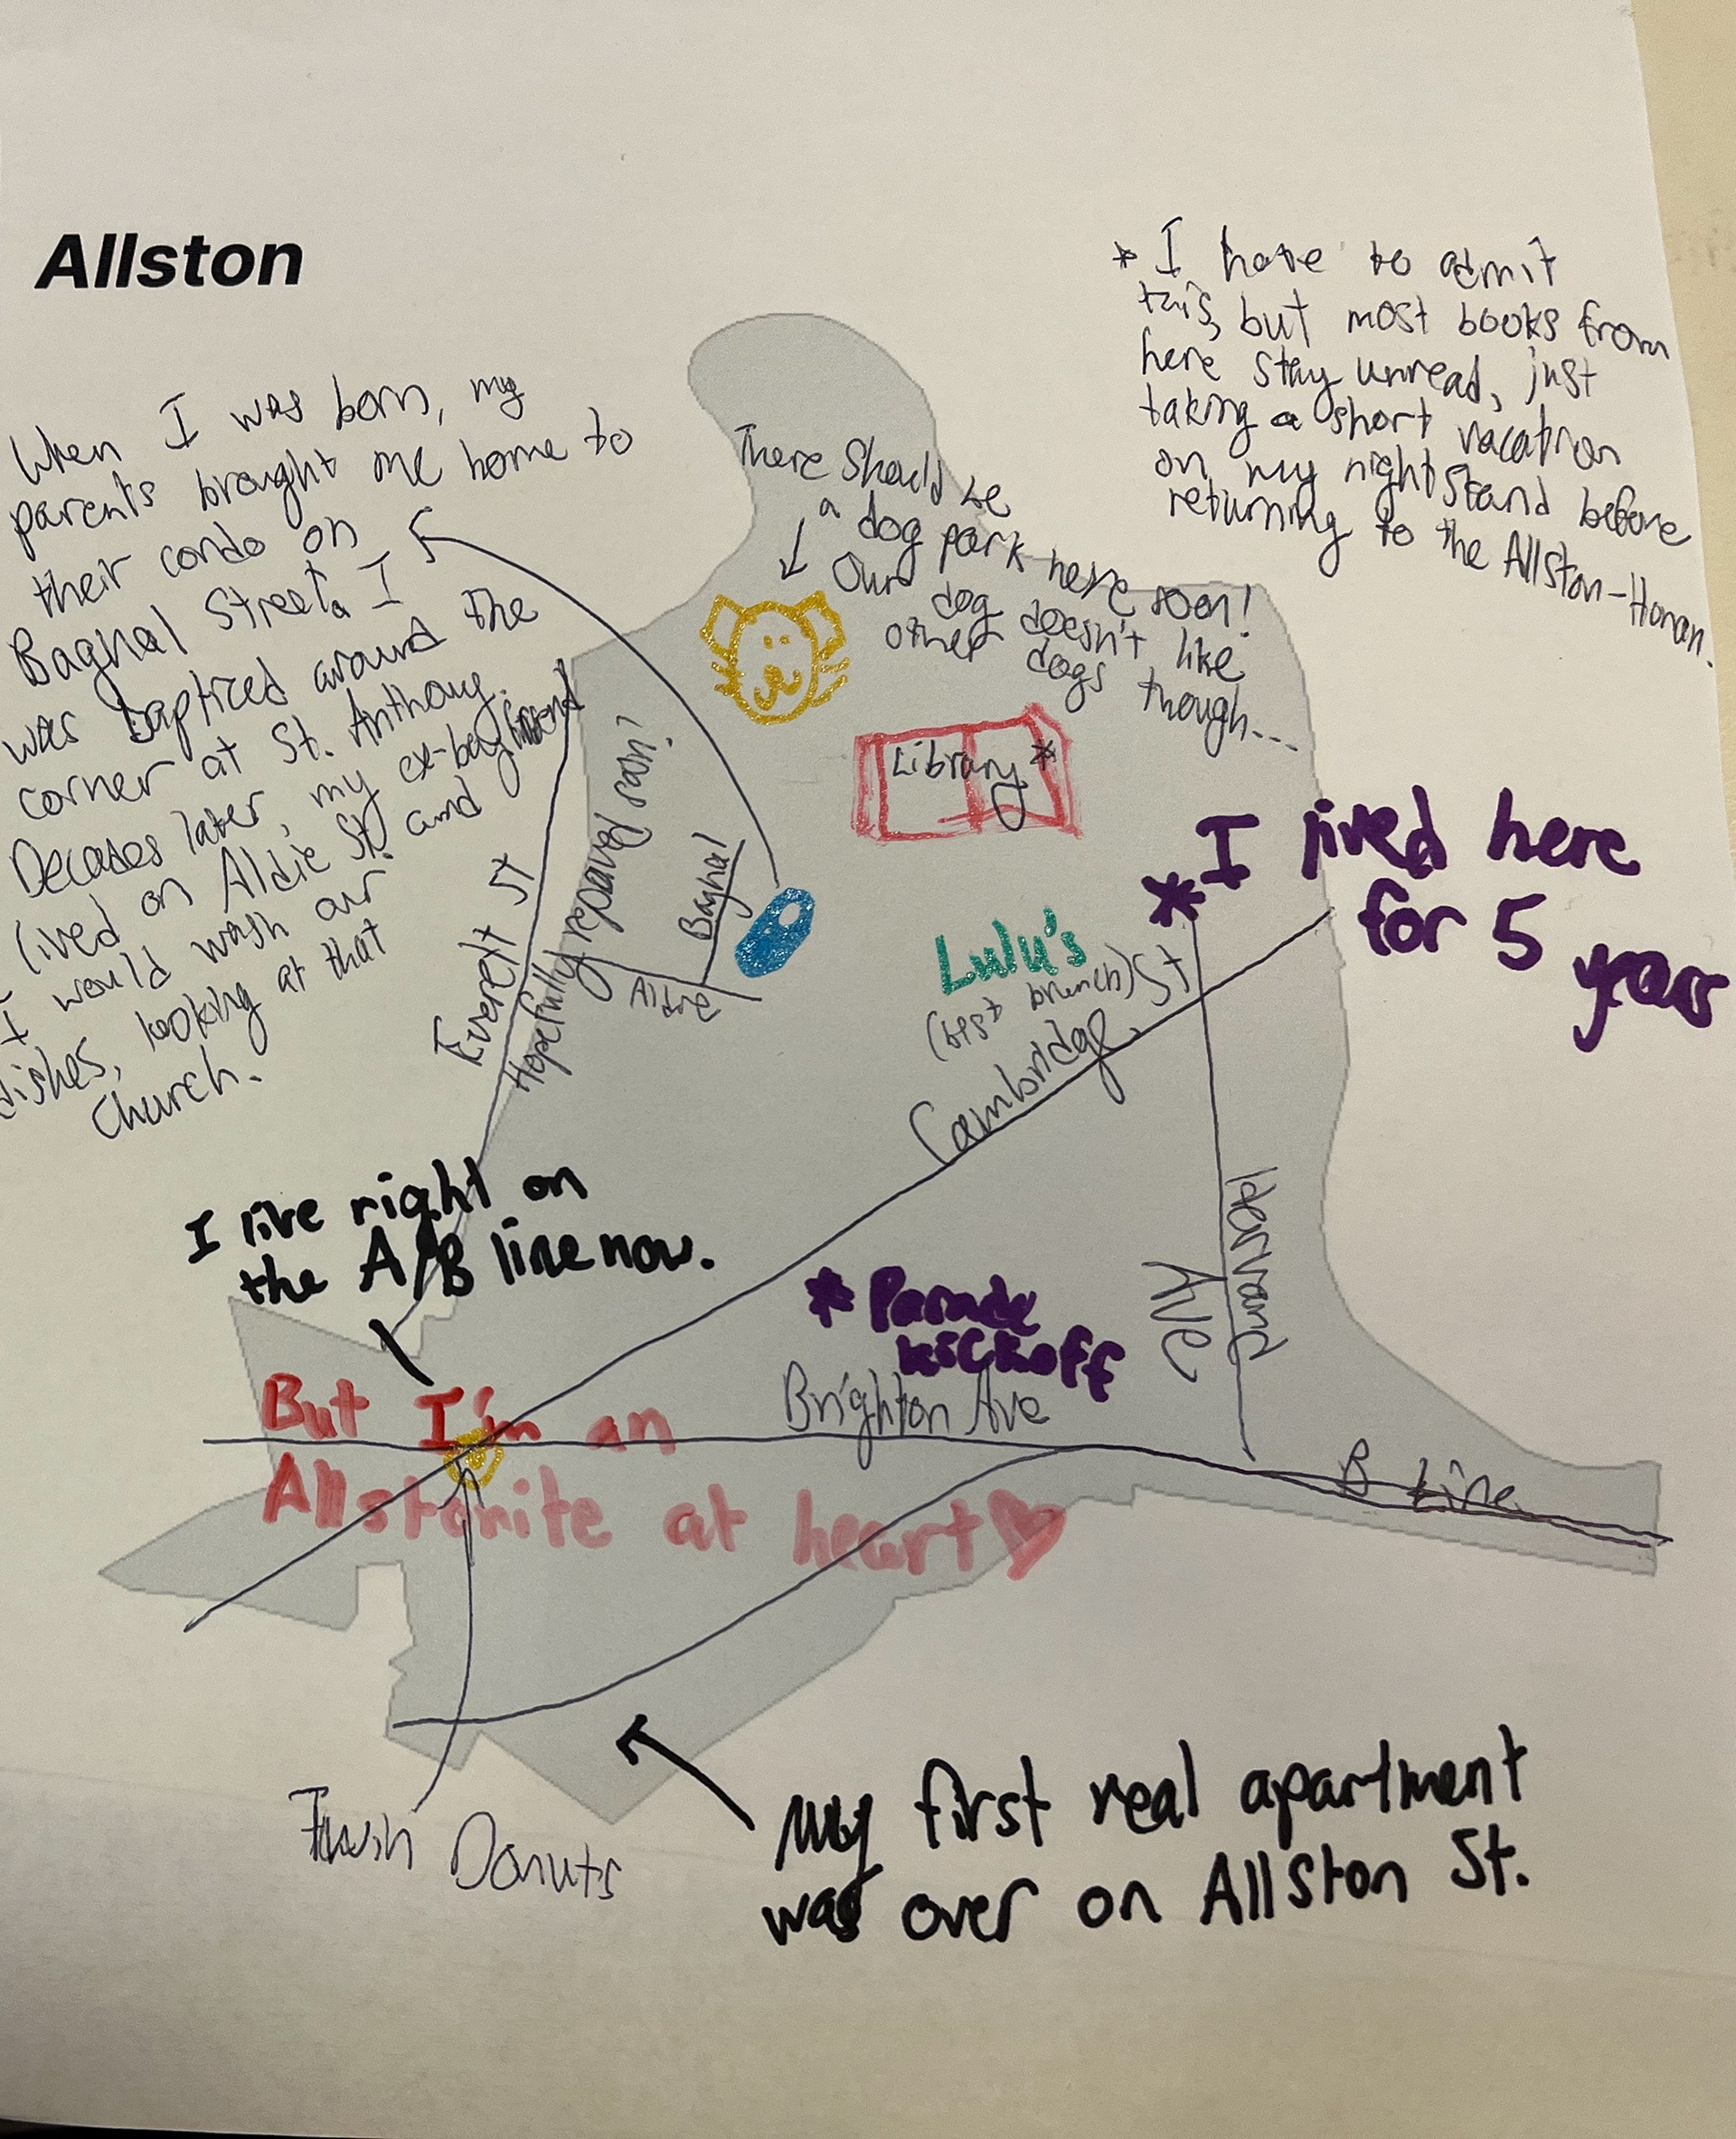 Allston
* I hate to admit
this, but most books from
here stay unread, just
taking a short vacation
on my nightstand before
returning to the Allston-Honan.
When I was born, my
parents brought me home to
their condo on
Bagnal Street. I
was baptized around the
corner at St. Anthony.
Decades later, my ex-boyfriend
lived on Aldie St. and
I would wash our
dishes, looking at that
Church.
There should be
a dog park here soon!
Our dog doesn't like
other dogs though...
Library *
Everett St
Hopefully repaved soon!
Bagnal
Aldie
Lulu's
(best brunch)
Cambridge St
* I lived here
for 5 years
I live right on
the A/B line now.
* Parade
kickoff
Brighton Ave
Ave
B Line
But I'm an
Allstonite at heart
Twin Donuts
My first real apartment
was over on Allston St.